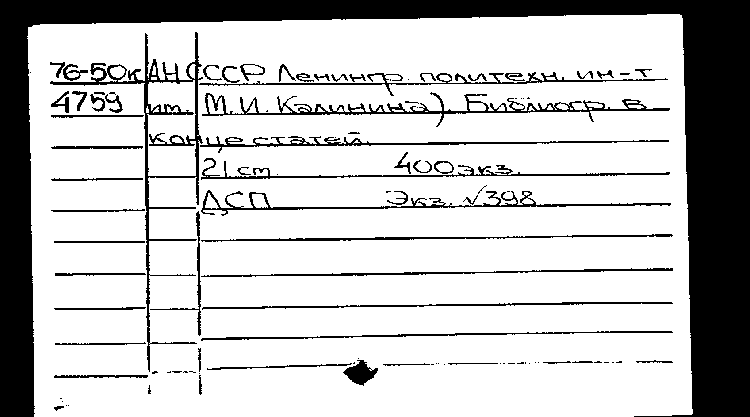 76-50к АН СССР. Ленингр. политехн. ин-т
4759 им. М.И. Калинина). Библиогр. в
конце статей.
21 cm 400 экз.
ДСП Экз. √398